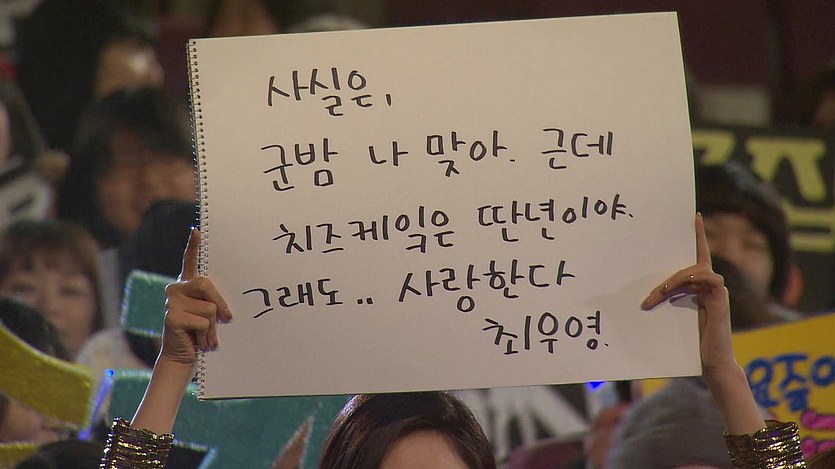 사실은,
군밤 나 맞아. 근데
치즈케잌은 딴년이야.
그래도.. 사랑한다
최우영.